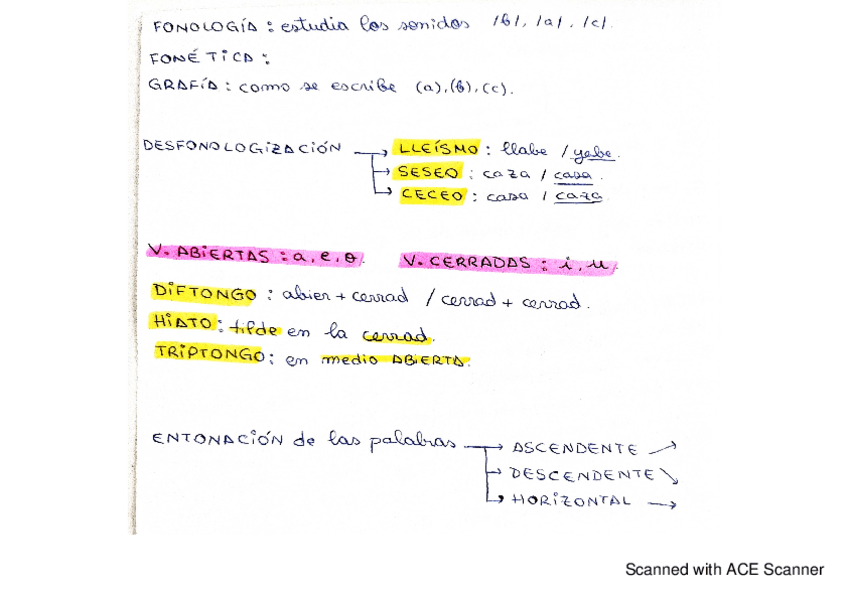 FONOLOGÍA : estudia los sonidos /b/, /a/, /c/.
FONÉTICA :
GRAFÍA : como se escribe (a), (b), (c).
DESFONOLOGIZACIÓN → LLEÍSMO : llabe / yabe.
→ SESEO : caza / casa.
→ CECEO : casa / caza
V. ABIERTAS : a, e, o. V. CERRADAS : i, u.
DIFTONGO : abier + cerrad / cerrad + cerrad.
HIATO : tilde en la cerrad.
TRIPTONGO : en medio ABIERTA.
ENTONACIÓN de las palabras → ASCENDENTE ↗
→ DESCENDENTE ↘
→ HORIZONTAL →
Scanned with ACE Scanner